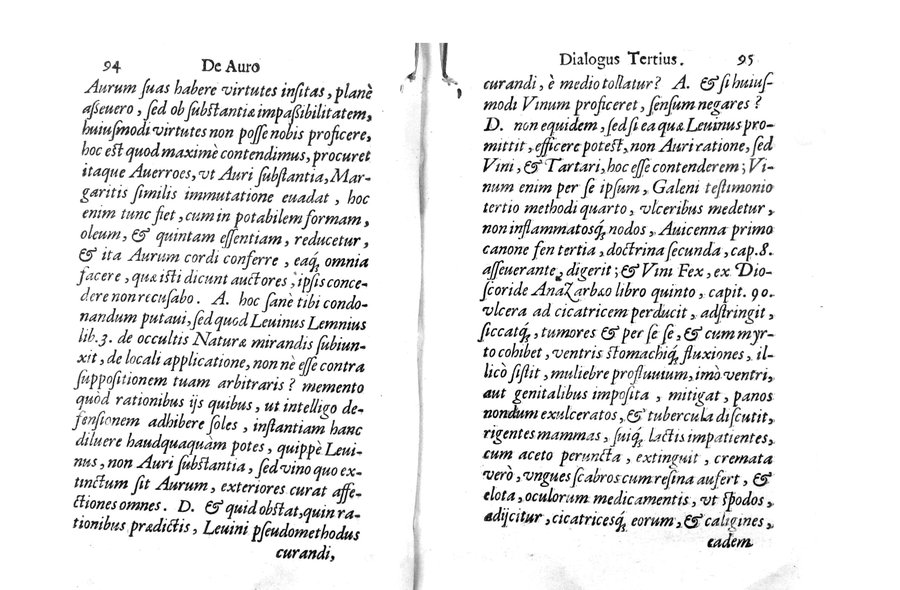 94 De Auro
Aurum suas habere virtutes insitas, planè
asseuero, sed ob substantiæ impassibilitatem,
huiusmodi virtutes non posse nobis proficere,
hoc est quod maximè contendimus, procuret
itaque Auerroes, vt Auri substantia, Mar-
garitis similis immutatione euadat, hoc
enim tunc fiet, cum in potabilem formam,
oleum, & quintam essentiam, reducetur,
& ita Aurum cordi conferre, eaq́; omnia
facere, quæ isti dicunt auctores, ipsis conce-
dere non recusabo. A. hoc sanè tibi condo-
nandum putaui, sed quod Leuinus Lemnius
lib. 3. de occultis Naturæ mirandis subiun-
xit, de locali applicatione, non nè esse contra
suppositionem tuam arbitraris? memento
quòd rationibus ijs quibus, ut intelligo de-
fensionem adhibere soles, instantiam hanc
diluere haudquaquàm potes, quippè Leui-
nus, non Auri substantia, sed vino quo ex-
tinctum sit Aurum, exteriores curat affe-
ctiones omnes. D. & quid obstat, quin ra-
tionibus prædictis, Leuini pseudomethodus
curandi,
Dialogus Tertius. 95
curandi, è medio tollatur? A. & si huius-
modi Vinum proficeret, sensum negares?
D. non equidem, sed si ea quæ Leuinus pro-
mittit, efficere potest, non Auri ratione, sed
Vini, & Tartari, hoc esse contenderem; Vi-
num enim per se ipsum, Galeni testimonio
tertio methodi quarto, vlceribus medetur,
non inflammatosq́; nodos, Auicenna primo
canone fen tertia, doctrina secunda, cap. 8.
asseuerante, digerit; & Vini Fex, ex Dio-
scoride Anazarbæo libro quinto, capit. 90.
vlcera ad cicatricem perducit, adstringit,
siccatq́;, tumores & per se se, & cum myr-
to cohibet, ventris stomachiq́; fluxiones, il-
licò sistit, muliebre profluuium, imò ventri,
aut genitalibus imposita, mitigat, panos
nondum exulceratos, & tubercula discutit,
rigentes mammas, suiq́; lactis impatientes,
cum aceto peruncta, extinguit, cremata
verò, vngues scabros cum resina aufert, &
elota, oculorum medicamentis, vt spodos,
adijcitur, cicatricesq́; eorum, & caligines,
eadem